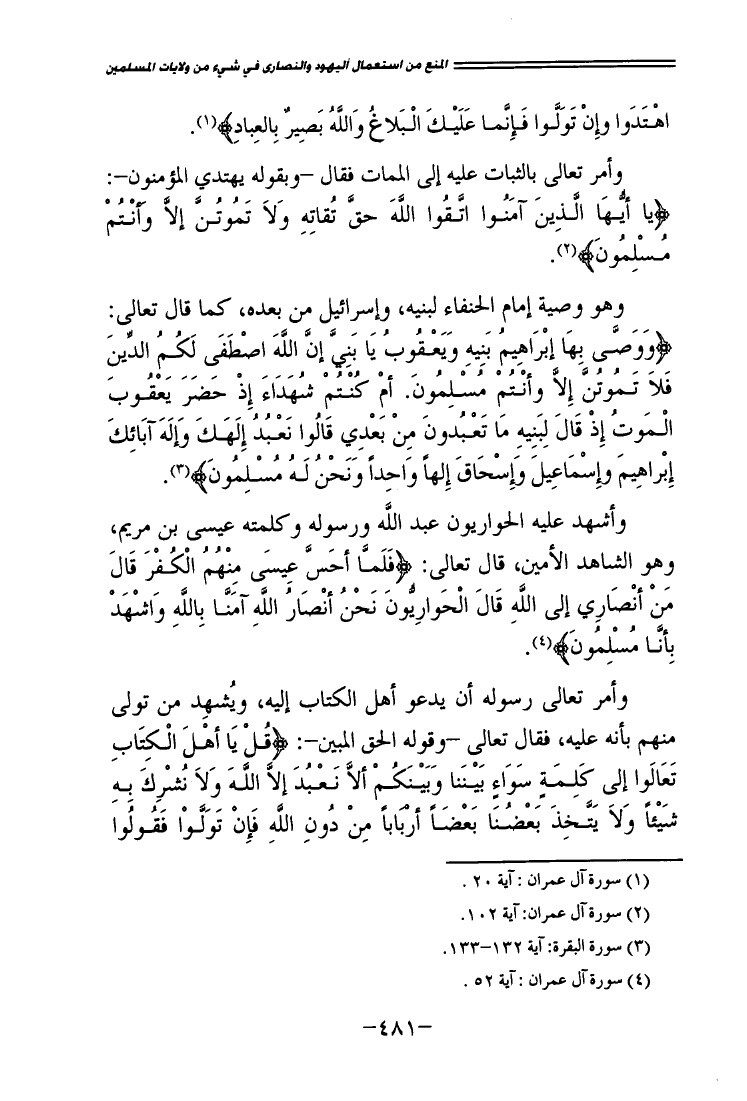 المنع من استعمال اليهود والنصارى في شيء من ولايات المسلمين
اهْتَدَوا وإنْ تَوَلَّـوا فَـإنَّمـا عَلَيْـكَ الْـبَلاغُ وَاللَّهُ بَصِيرٌ بِالعِبادِ﴾(١).
وأمر تعالى بالثبات عليه إلى الممات فقال –وبقوله يهتدي المؤمنون–:
﴿يا أيُّـهَا الَّـذِينَ آمَنُـوا اتَّـقُوا اللَّهَ حقَّ تُقاتِهِ وَلَا تَمُوتُـنَّ إلاَّ وَأَنْـتُمْ
مُـسْـلِمُونَ﴾(٢).
وهو وصية إمام الحنفاء لبنيه، وإسرائيل من بعده، كما قال تعالى:
﴿وَوَصَّـى بِهَا إبْرَاهِيمُ بَنِيهِ وَيَعْـقُوبُ يَا بَنِيَّ إنَّ اللَّهَ اصْطَفَى لَكُـمُ الدِّينَ
فَلاَ تَـمُوتُنَّ إلاَّ وأنْـتُمْ مُـسْـلِمُونَ. أمْ كُنْـتُمْ شُهَدَاءَ إذْ حَضَرَ يَعْقُـوبَ
الْـمَوتُ إذْ قَالَ لِبَنِيهِ مَا تَعْـبُدونَ مِنْ بَعْدِي قَالُوا نَعْـبُدُ إلَهَـكَ وَإلَهَ آبَائِكَ
إبْراهِيمَ وإسْمَاعِيلَ وَإسْحَاقَ إلهاً وَاحِداً وَنَحْنُ لَـهُ مُسْـلِمُونَ﴾(٣).
وأشهد عليه الحواريون عبد اللَّه ورسوله وكلمته عيسى بن مريم،
وهو الشاهد الأمين، قال تعالى: ﴿فَلَمـَّا أَحَسَّ عِيسَى مِنْهُمُ الْكُـفْرَ قَالَ
مَنْ أنْصَارِي إلى اللَّهِ قَالَ الْحَوارِيُّونَ نَحْنُ أَنْصَارُ اللَّهِ آمَنَّـا بِاللَّهِ وَاشْهَدْ
بِأنَّـا مُسْلِمُونَ﴾(٤).
وأمر تعالى رسوله أن يدعو أهل الكتاب إليه، ويُشهِد من تولى
منهم بأنه عليه، فقال تعالى –وقوله الحق المبين–: ﴿قُـلْ يَا أهْـلَ الْـكِتَابِ
تَعَالَوا إلى كَلِـمَةٍ سَوَاءٍ بَيْـنَنا وَبَيْـنَكُـمْ ألاَّ نَـعْـبُدَ إلاَّ اللَّـهَ وَلَا نُشْرِكَ بِـهِ
شَيْئاً وَلَا يَتَّـخِذَ بَعْضُنَـا بَعْضَـاً أرْبَاباً مِنْ دُونِ اللَّهِ فَإنْ تَوَلَّـوْا فَقُـولُوا
(١) سورة آل عمران : آية ٢٠ .
(٢) سورة آل عمران: آية ١٠٢.
(٣) سورة البقرة: آية ١٣٢–١٣٣.
(٤) سورة آل عمران : آية ٥٢ .
–٤٨١–